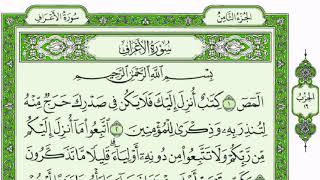 سُورَةُ الأَعْرَافِ
الجُزْءُ الثَّامِنُ
سُورَةُ الأَعْرَافِ
بِسْمِ اللَّهِ الرَّحْمَٰنِ الرَّحِيمِ
الٓمٓصٓ ۝١ كِتَٰبٌ أُنزِلَ إِلَيْكَ فَلَا يَكُن فِى صَدْرِكَ حَرَجٌ مِّنْهُ
لِتُنذِرَ بِهِۦ وَذِكْرَىٰ لِلْمُؤْمِنِينَ ۝٢ ٱتَّبِعُوا۟ مَآ أُنزِلَ إِلَيْكُم
مِّن رَّبِّكُمْ وَلَا تَتَّبِعُوا۟ مِن دُونِهِۦٓ أَوْلِيَآءَ ۗ قَلِيلًا مَّا تَذَكَّرُونَ
الحِزْبُ
١٦